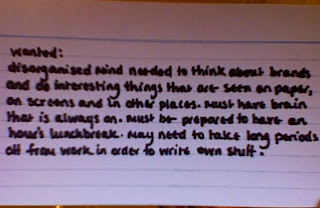 wanted:
disorganised mind needed to think about brands
and do interesting things that are seen on paper,
on screens and in other places. Must have brain
that is always on. Must be prepared to have an
hour's lunchbreak. May need to take long periods
off from work in order to write own stuff.